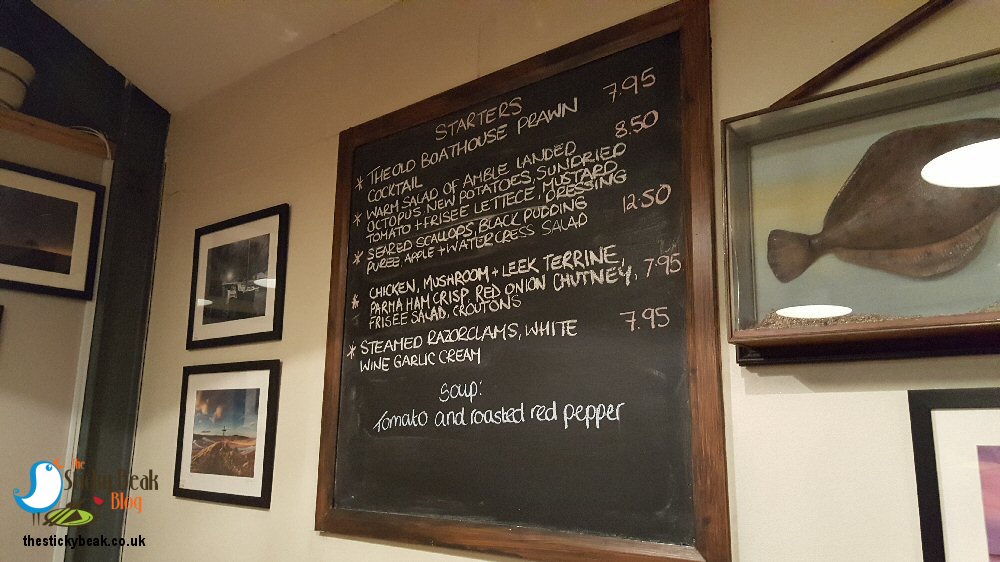 STARTERS
* THE OLD BOATHOUSE PRAWN 7.95
COCKTAIL
* WARM SALAD OF AMBLE LANDED 8.50
OCTOPUS NEW POTATOES, SUNDRIED
TOMATO + FRISEE LETTECE, MUSTARD
DRESSING
* SEARED SCALLOPS, BLACK PUDDING 12.50
PUREE APPLE + WATERCRESS SALAD
* CHICKEN, MUSHROOM + LEEK TERRINE,
PARMA HAM CRISP, RED ONION CHUTNEY, 7.95
FRISEE SALAD, CROUTONS
* STEAMED RAZORCLAMS, WHITE 7.95
WINE GARLIC CREAM
Soup:
Tomato and roasted red pepper
The
Sticky Beak
Blog
thestickybeak.co.uk